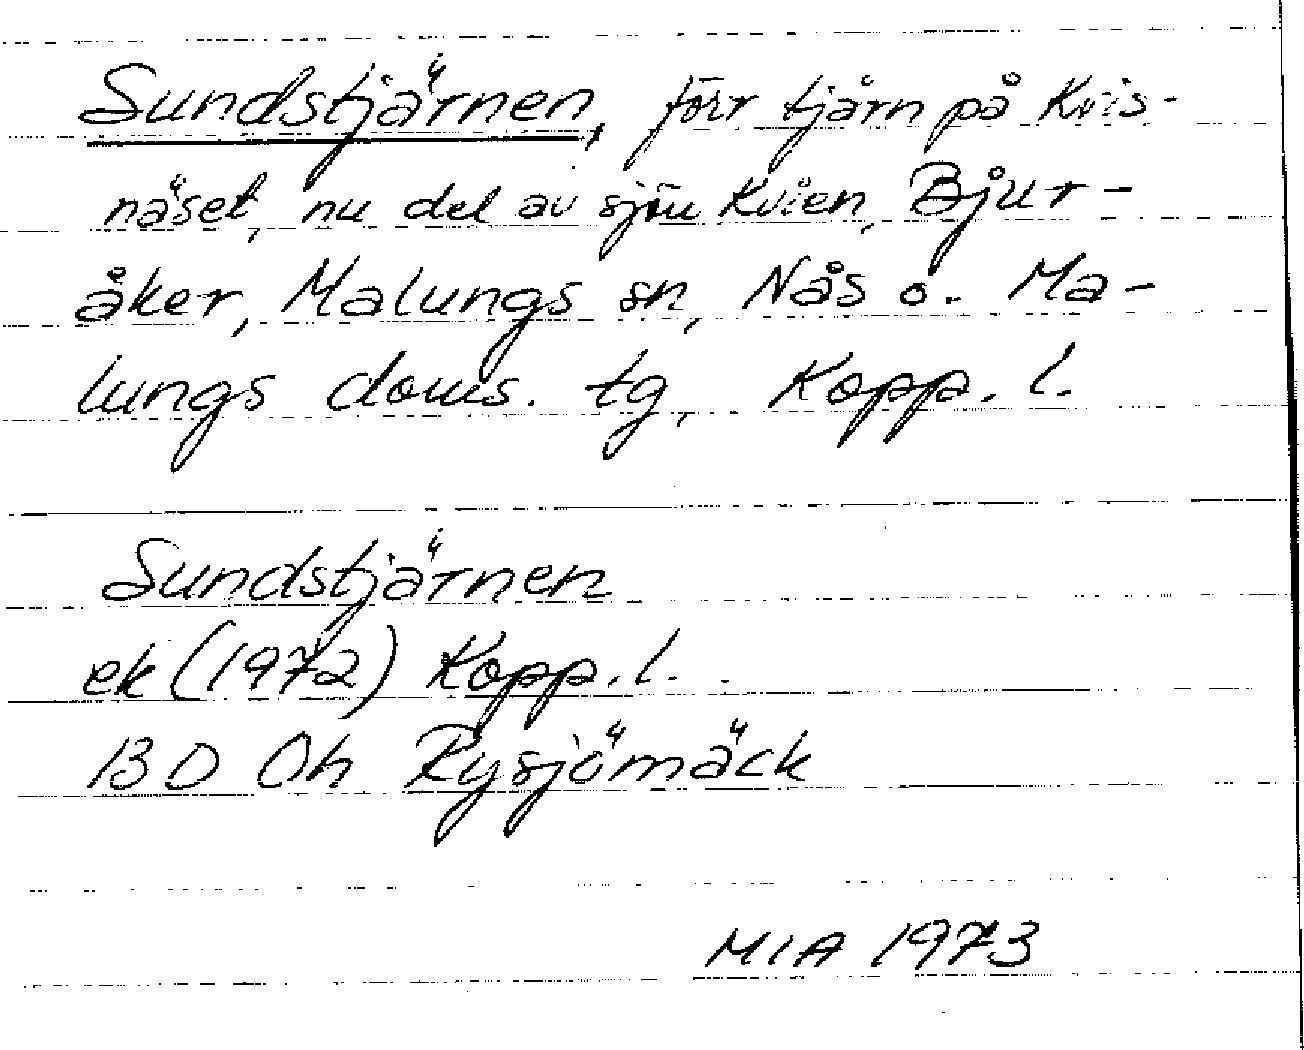 Sundstjärnen, förr tjärn på Kvis-
näset, nu del av sjön Kvien, Bjur-
åker, Malungs sn, Nås o. Ma-
lungs doms. tg, Kopp. l.
Sundstjärnen
ek (1972) Kopp. l.
13 D 0h Rysjömäck
MIA 1973